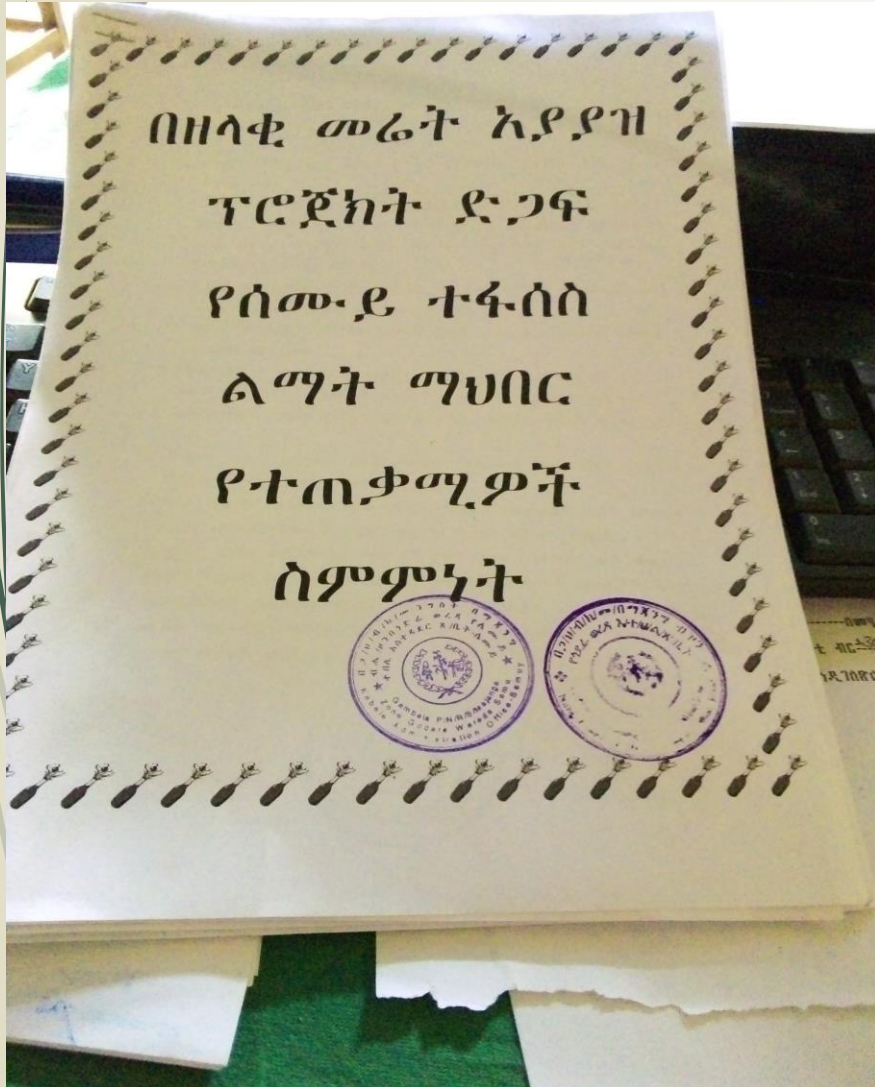 በዘላቂ መሬት አያያዝ
ፕሮጀክት ድጋፍ
የሰሙይ ተፋሰስ
ልማት ማህበር
የተጠቃሚዎች
ስምምነት
Gambela P/N/R/S/Majange
Zone Godere Woreda Semu